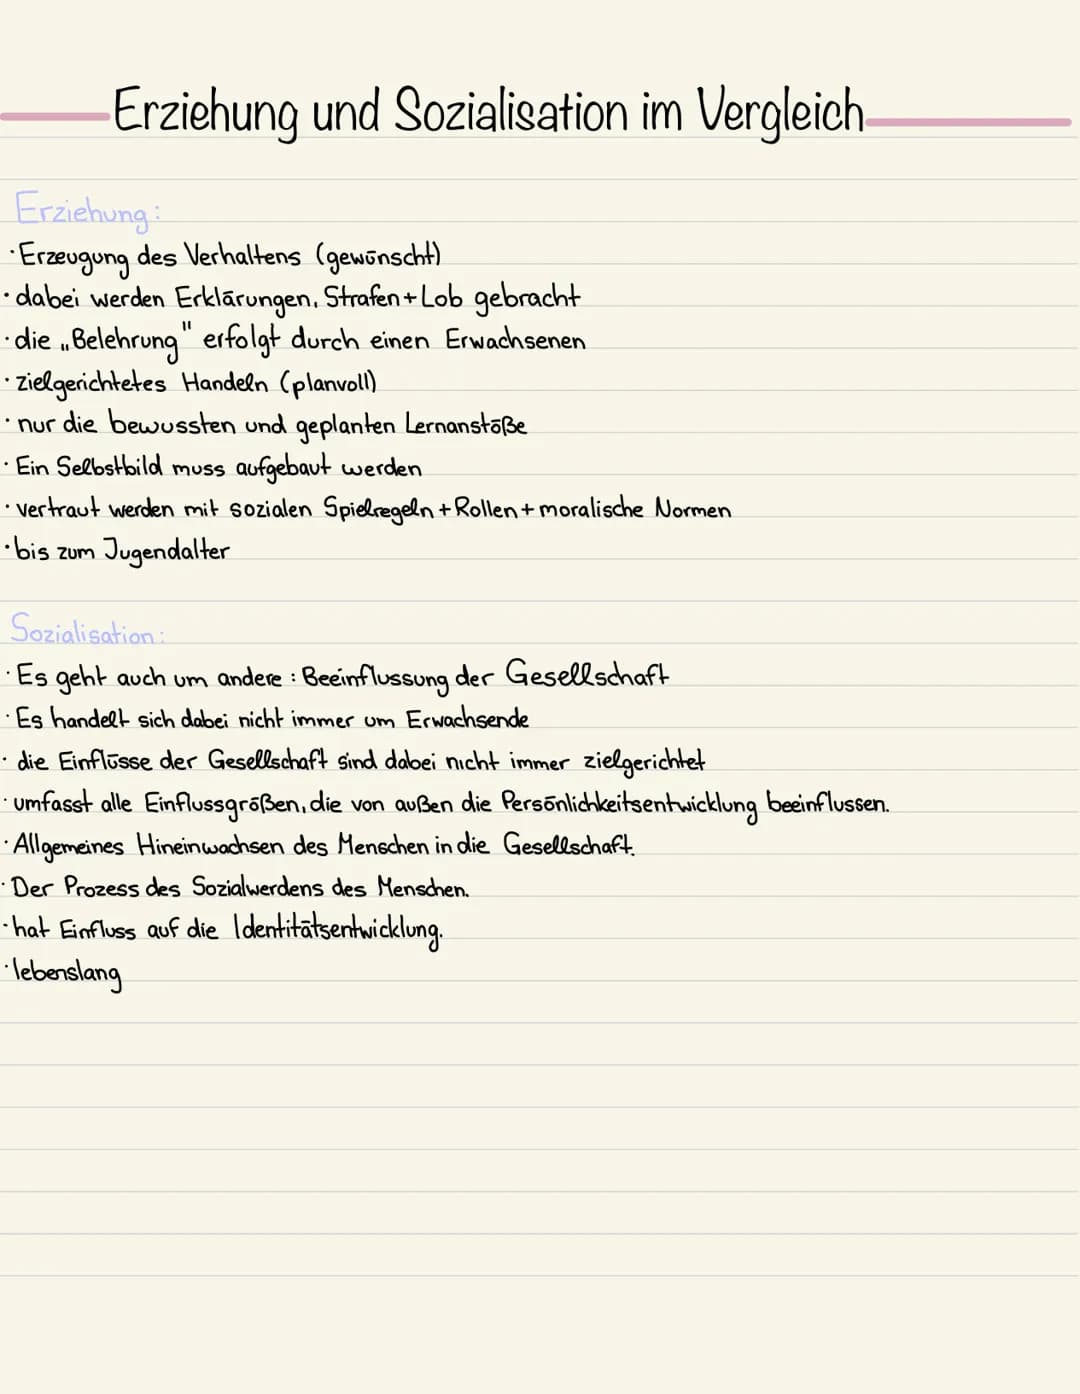 Erziehung und Sozialisation im Vergleich
Erziehung:
· Erzeugung des Verhaltens (gewünscht)
· dabei werden Erklärungen, Strafen + Lob gebracht
· die „Belehrung" erfolgt durch einen Erwachsenen
· zielgerichtetes Handeln (planvoll)
· nur die bewussten und geplanten Lernanstöße
· Ein Selbstbild muss aufgebaut werden
· vertraut werden mit sozialen Spielregeln + Rollen + moralische Normen
· bis zum Jugendalter
Sozialisation:
· Es geht auch um andere : Beeinflussung der Gesellschaft
· Es handelt sich dabei nicht immer um Erwachsende
· die Einflüsse der Gesellschaft sind dabei nicht immer zielgerichtet
· umfasst alle Einflussgrößen, die von außen die Persönlichkeitsentwicklung beeinflussen.
· Allgemeines Hineinwachsen des Menschen in die Gesellschaft.
· Der Prozess des Sozialwerdens des Menschen.
· hat Einfluss auf die Identitätsentwicklung.
· lebenslang